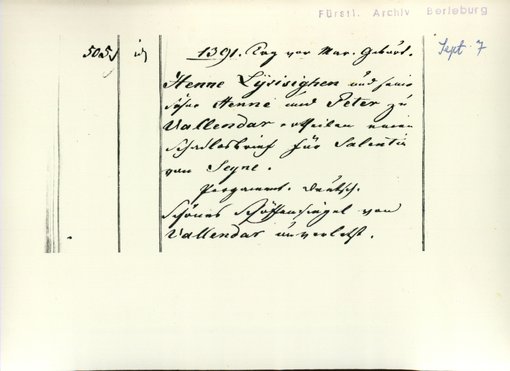 Fürstl. Archiv Berleburg
Sept. 7
505
1391. Tag vor Mar. Geburt.
Henne Lysisighen und seine
Söhne Henne und Peter zu
Vallendar ertheilen einen
Schadlosbrief für Salentin
von Seyne.
Pergament. Deutsch.
Schönes Schöffensiegel von
Vallendar unverletzt.